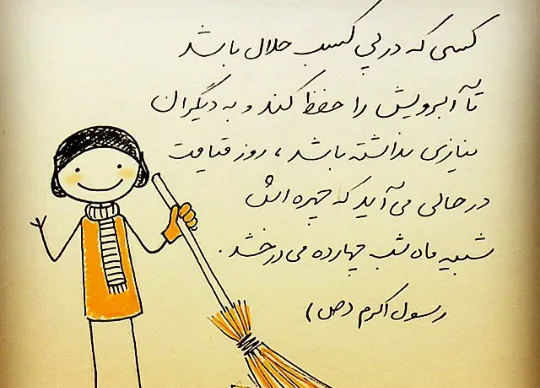 کسی که در پی کسب حلال باشد
تا آبرویش را حفظ کند و به دیگران
نیازی نداشته باشد، روز قیامت
در حالی می‌آید که چهره اش
شبیه ماه شب چهارده می‌درخشد.
رسول اکرم (ص)